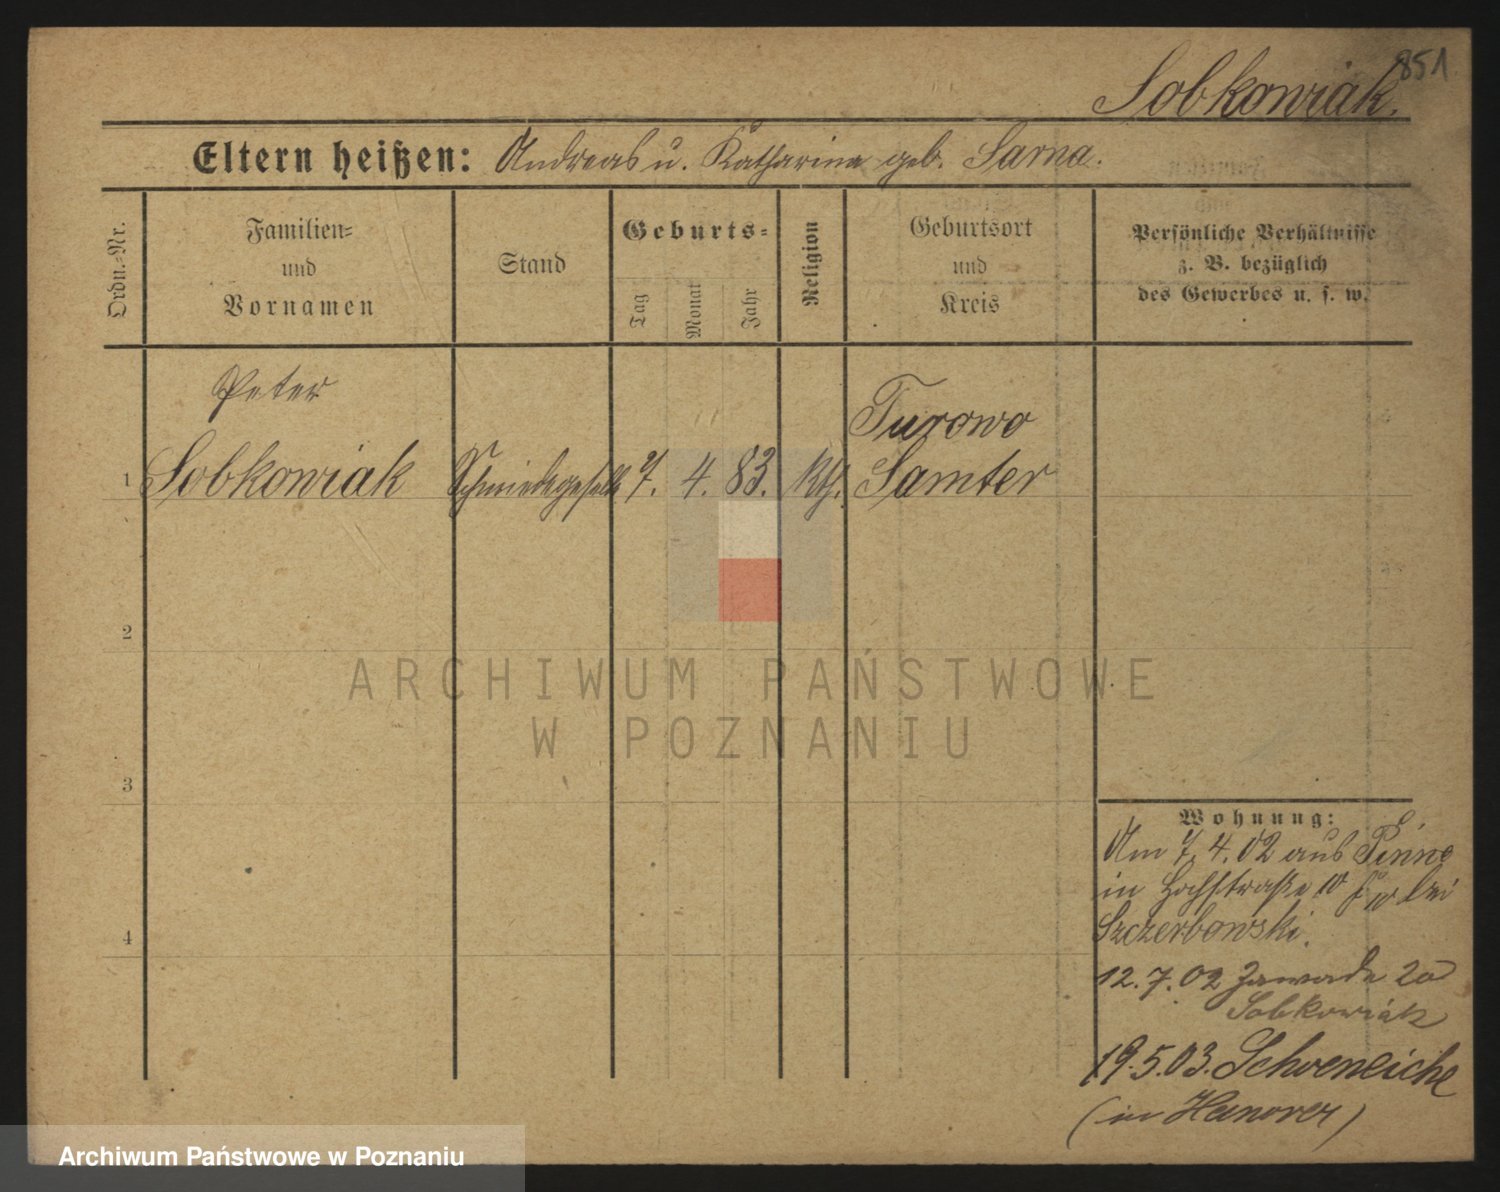 851
Sobkowiak.
Eltern heißen: Andreas u. Katharina geb. Sarna.
Ordn.-Nr.
Familien-
und
Vornamen
Stand
Geburts-
Tag
Monat
Jahr
Religion
Geburtsort
und
Kreis
Persönliche Verhältnisse
z. B. bezüglich
des Gewerbes u. s. w.
Peter
Turowo
1 Sobkowiak Schmiedegeselle 7. 4. 83. kth. Samter
2
3
4
ARCHIWUM PAŃSTWOWE
W POZNANIU
Wohnung:
Am 7. 4. 02 aus Pinne
in Hochstraße 10 bei
Szczerbowski.
12. 7. 02 Zawade 20
Sobkowiak
19. 5. 03. Schoeneiche
(in Hanover)
Archiwum Państwowe w Poznaniu